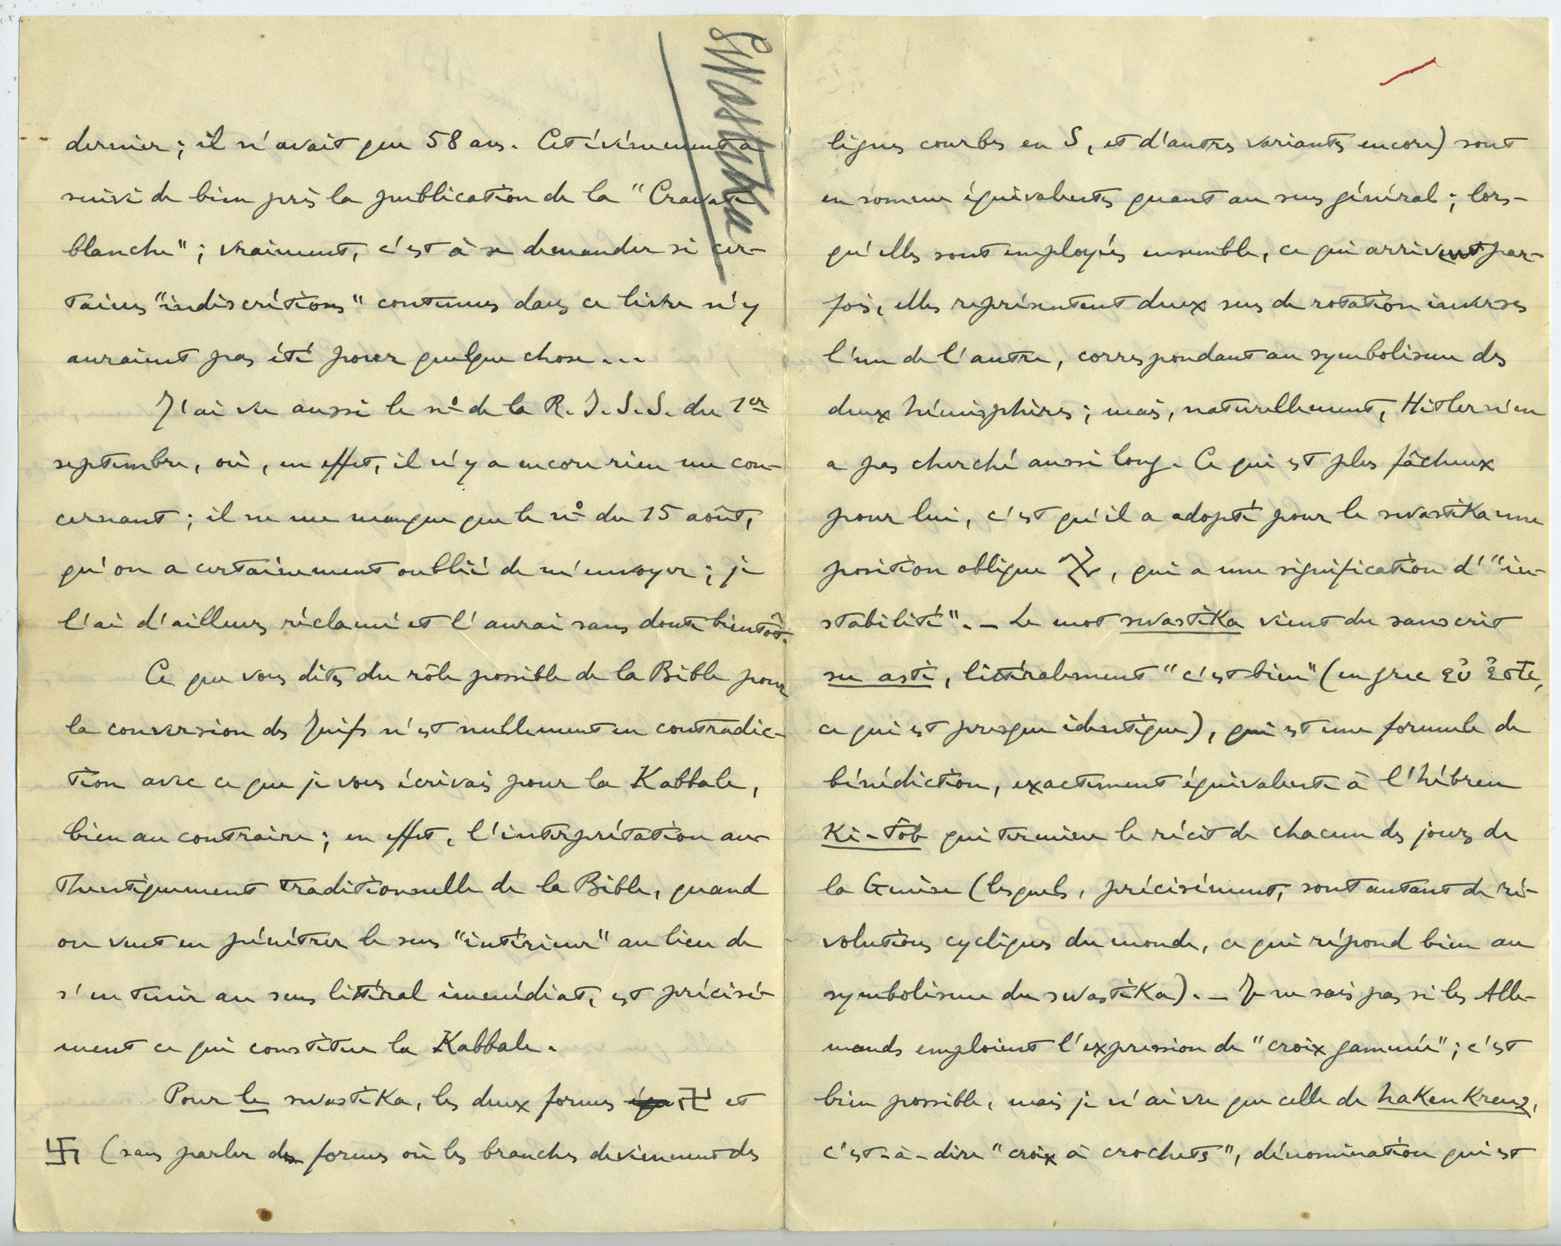 Swastika
dernier ; il n'avait que 58 ans. Cet événement a
suivi de bien près la publication de la "Cravate
blanche" ; vraiment, c'est à se demander si cer-
taines "indiscrétions" contenues dans ce livre n'y
auraient pas été pour quelque chose...
J'ai vu aussi le nº de la R. I. S. S. du 1er
septembre, où, en effet, il n'y a encore rien me con-
cernant ; il ne me manque que le nº du 15 août,
qu'on a certainement oublié de m'envoyer ; je
l'ai d'ailleurs réclamé et l'aurai sans doute bientôt.
Ce que vous dites du rôle possible de la Bible pour
la conversion des Juifs n'est nullement en contradic-
tion avec ce que je vous écrivais pour la Kabbale,
bien au contraire ; en effet, l'interprétation au-
thentiquement traditionnelle de la Bible, quand
on veut en pénétrer le sens "intérieur" au lieu de
s'en tenir au sens littéral immédiat, est précisé-
ment ce qui constitue la Kabbale.
Pour le swastika, les deux formes 卍 et
卐 (sans parler des formes où les branches deviennent des
lignes courbes en S, et d'autres variantes encore) sont
en somme équivalentes quant au sens général ; lors-
qu'elles sont employées ensemble, ce qui arrive par-
fois, elles représentent deux sens de rotation inverses
l'un de l'autre, correspondant au symbolisme des
deux hémisphères ; mais, naturellement, Hitler n'en
a pas cherché aussi long. Ce qui est plus fâcheux
pour lui, c'est qu'il a adopté pour le swastika une
position oblique , qui a une signification d'"in-
stabilité". — Le mot swastika vient du sanscrit
su asti, littéralement "c'est bien" (en grec εὖ ἐστι,
ce qui est presque identique), qui est une formule de
bénédiction, exactement équivalente à l'hébreu
Ki-tôb qui termine le récit de chacun des jours de
la Genèse (lesquels, précisément, sont autant de ré-
volutions cycliques du monde, ce qui répond bien au
symbolisme du swastika). — Je ne sais pas si les Alle-
mands emploient l'expression de "croix gammée" ; c'est
bien possible, mais je n'ai vu que celle de hakenkreuz,
c'est-à-dire "croix à crochets", dénomination qui est